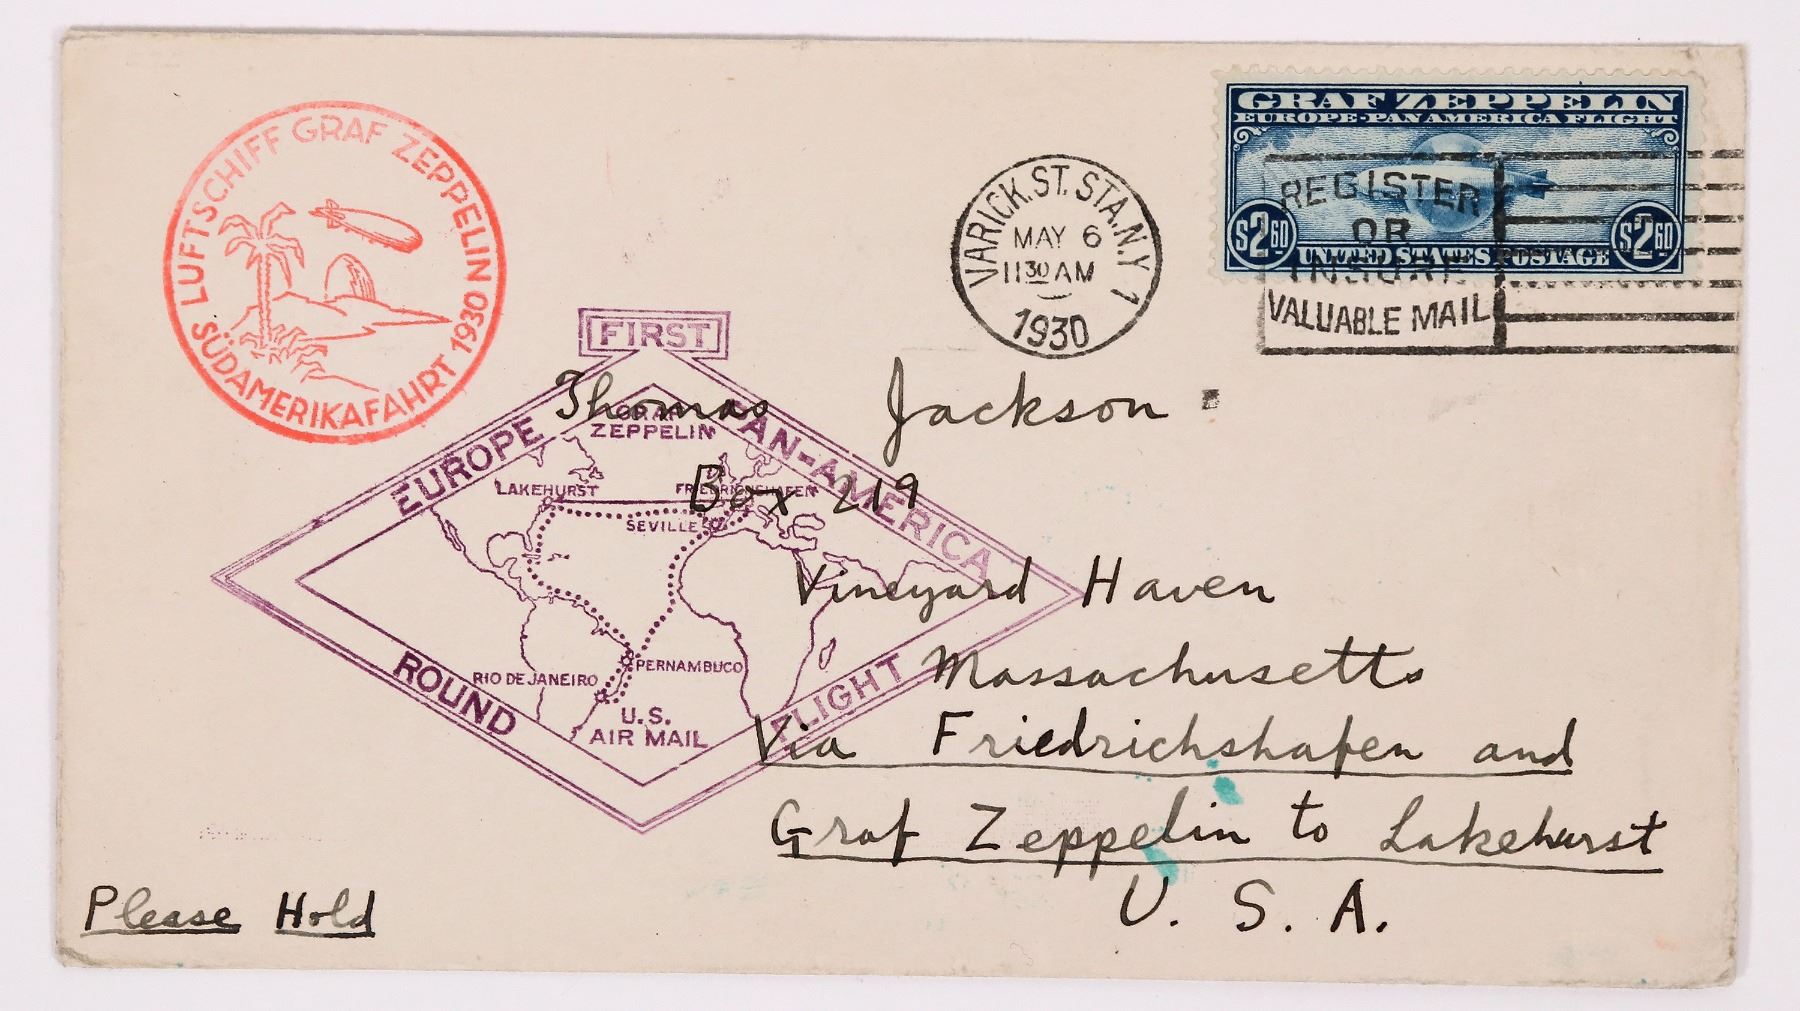 LUFTSCHIFF GRAF ZEPPELIN
SÜDAMERIKAFAHRT 1930
VARICK. ST. STA. N.Y. 1
MAY 6
11 30 AM
1930
GRAF ZEPPELIN
EUROPE-PAN AMERICA FLIGHT
$2.60 $2.60
UNITED STATES POSTAGE
REGISTER
OR
INSURE
VALUABLE MAIL
FIRST
EUROPE PAN-AMERICA
ROUND FLIGHT
GRAF
ZEPPELIN
LAKEHURST FRIEDRICHSHAFEN
SEVILLE
PERNAMBUCO
RIO DE JANEIRO
U.S.
AIR MAIL
Thomas Jackson
Box 219
Vineyard Haven
Massachusetts
Via Friedrichshafen and
Graf Zeppelin to Lakehurst
U. S. A.
Please Hold